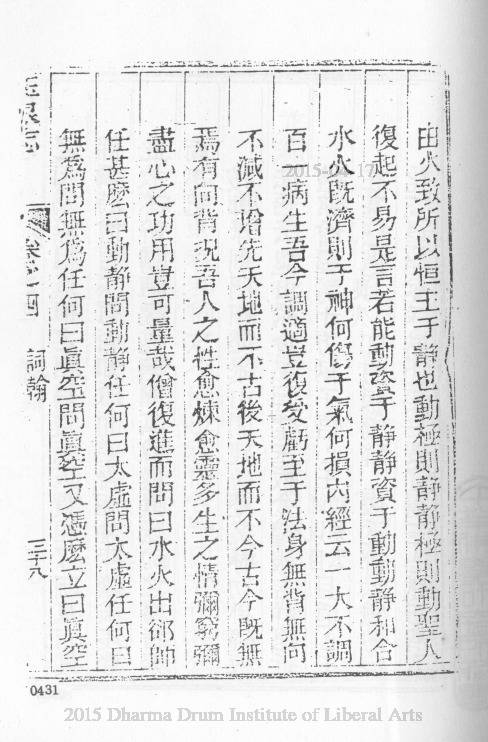 由火致所以恒主于静也動極則静静極則動聖人
復起不易是言若能動資于静静資于動動静和合
水火既濟則于神何傷于氣何損内經云一大不調
百一病生吾今調適豈復受虧至于法身無背無向
不減不增先天地而不古後天地而不今古今既無
焉有向背況吾人之性愈煉愈靈多生之情彌窮彌
盡心之功用豈可量哉僧復進而問曰水火出郤帥
任甚麽曰動静問動静任何曰太虚問太虚任何曰
無為問無為任何曰眞空問眞空又憑麽立曰眞空
志 卷之四 詞翰 三十八
2015-04-17
0431
2015 Dharma Drum Institute of Liberal Arts